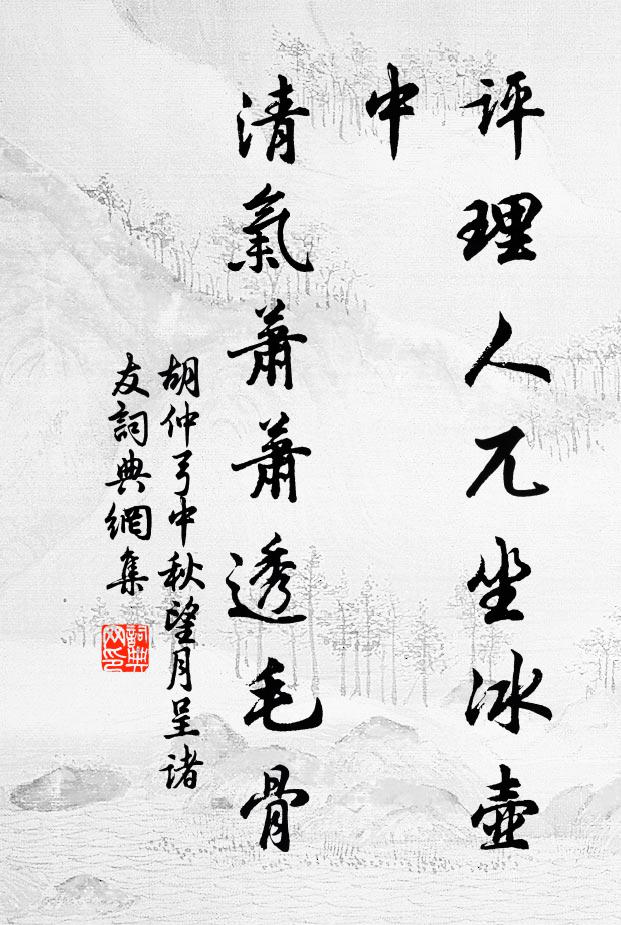 评理人兀坐冰壺
中
清氣蕭蕭透毛骨
胡仲弓中秋望月呈诸
友詞典網集
詞典
网印